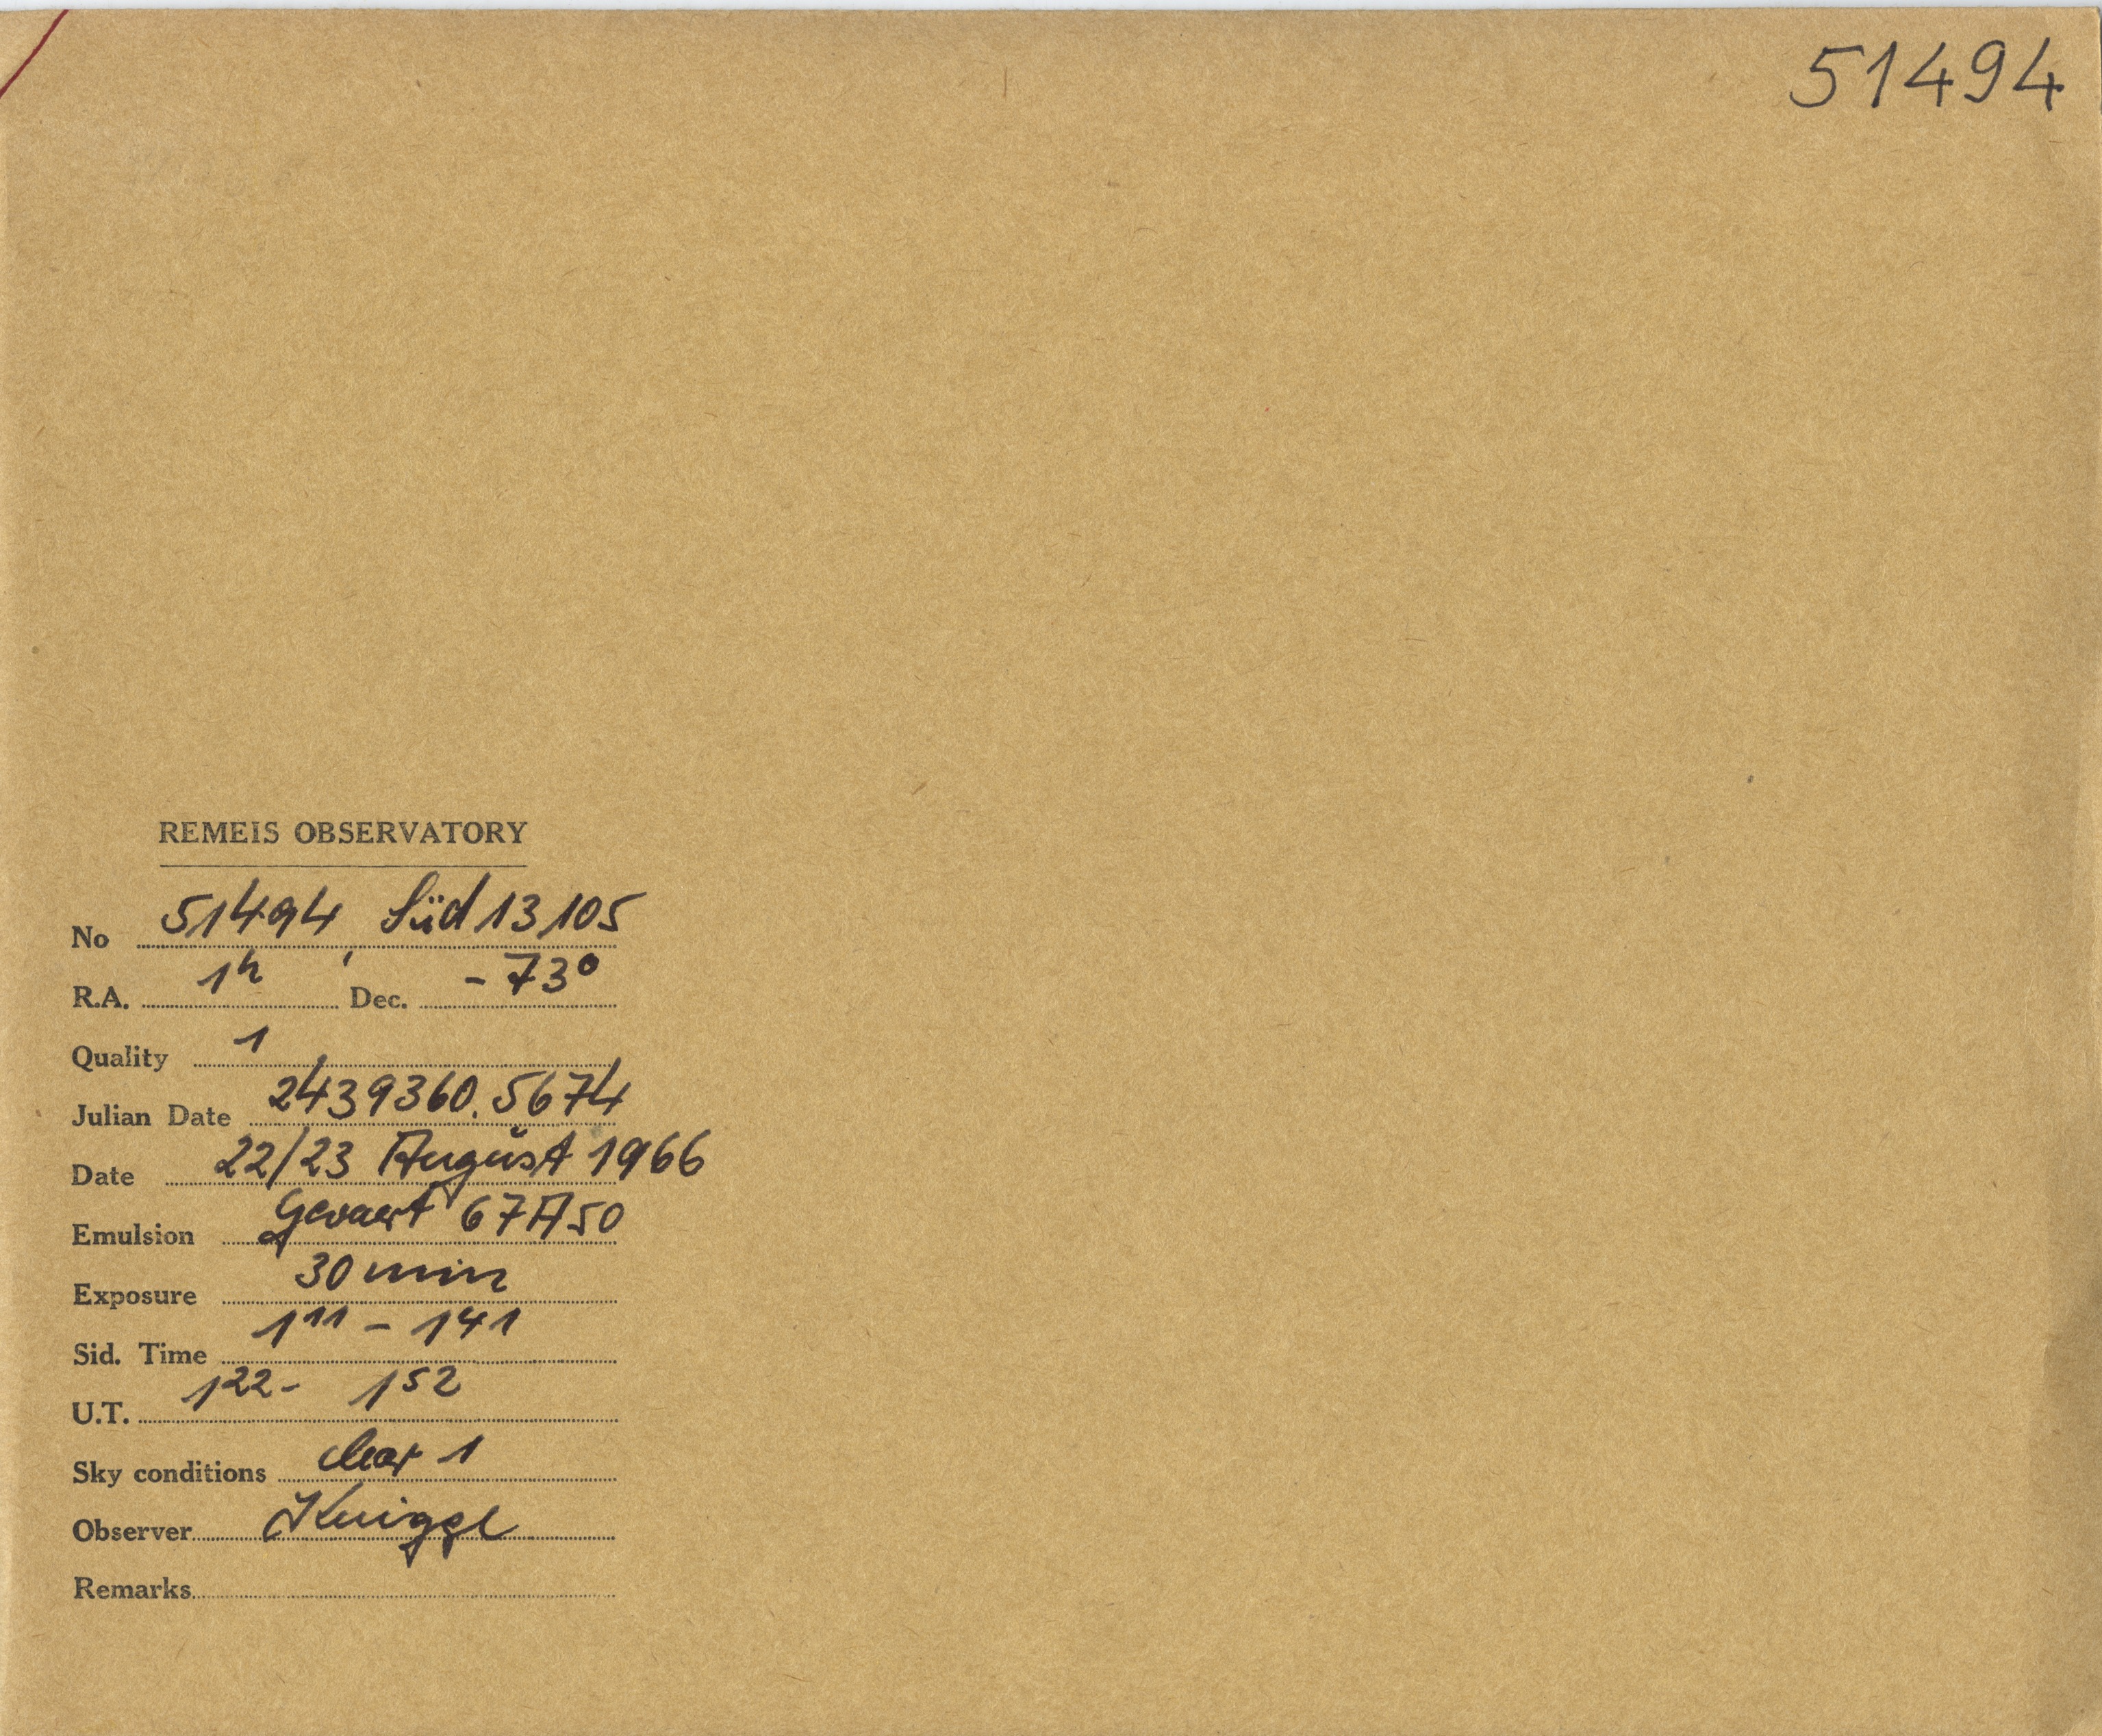 51494
REMEIS OBSERVATORY
No 51494, Süd 13105
R.A. 1h Dec. -73°
Quality 1
Julian Date 2439360.5674
Date 22/23 August 1966
Emulsion Gevaert 67A50
Exposure 30 min
Sid. Time 1 11 - 1 41
U.T. 1 22 - 1 52
Sky conditions clear 1
Observer
Remarks